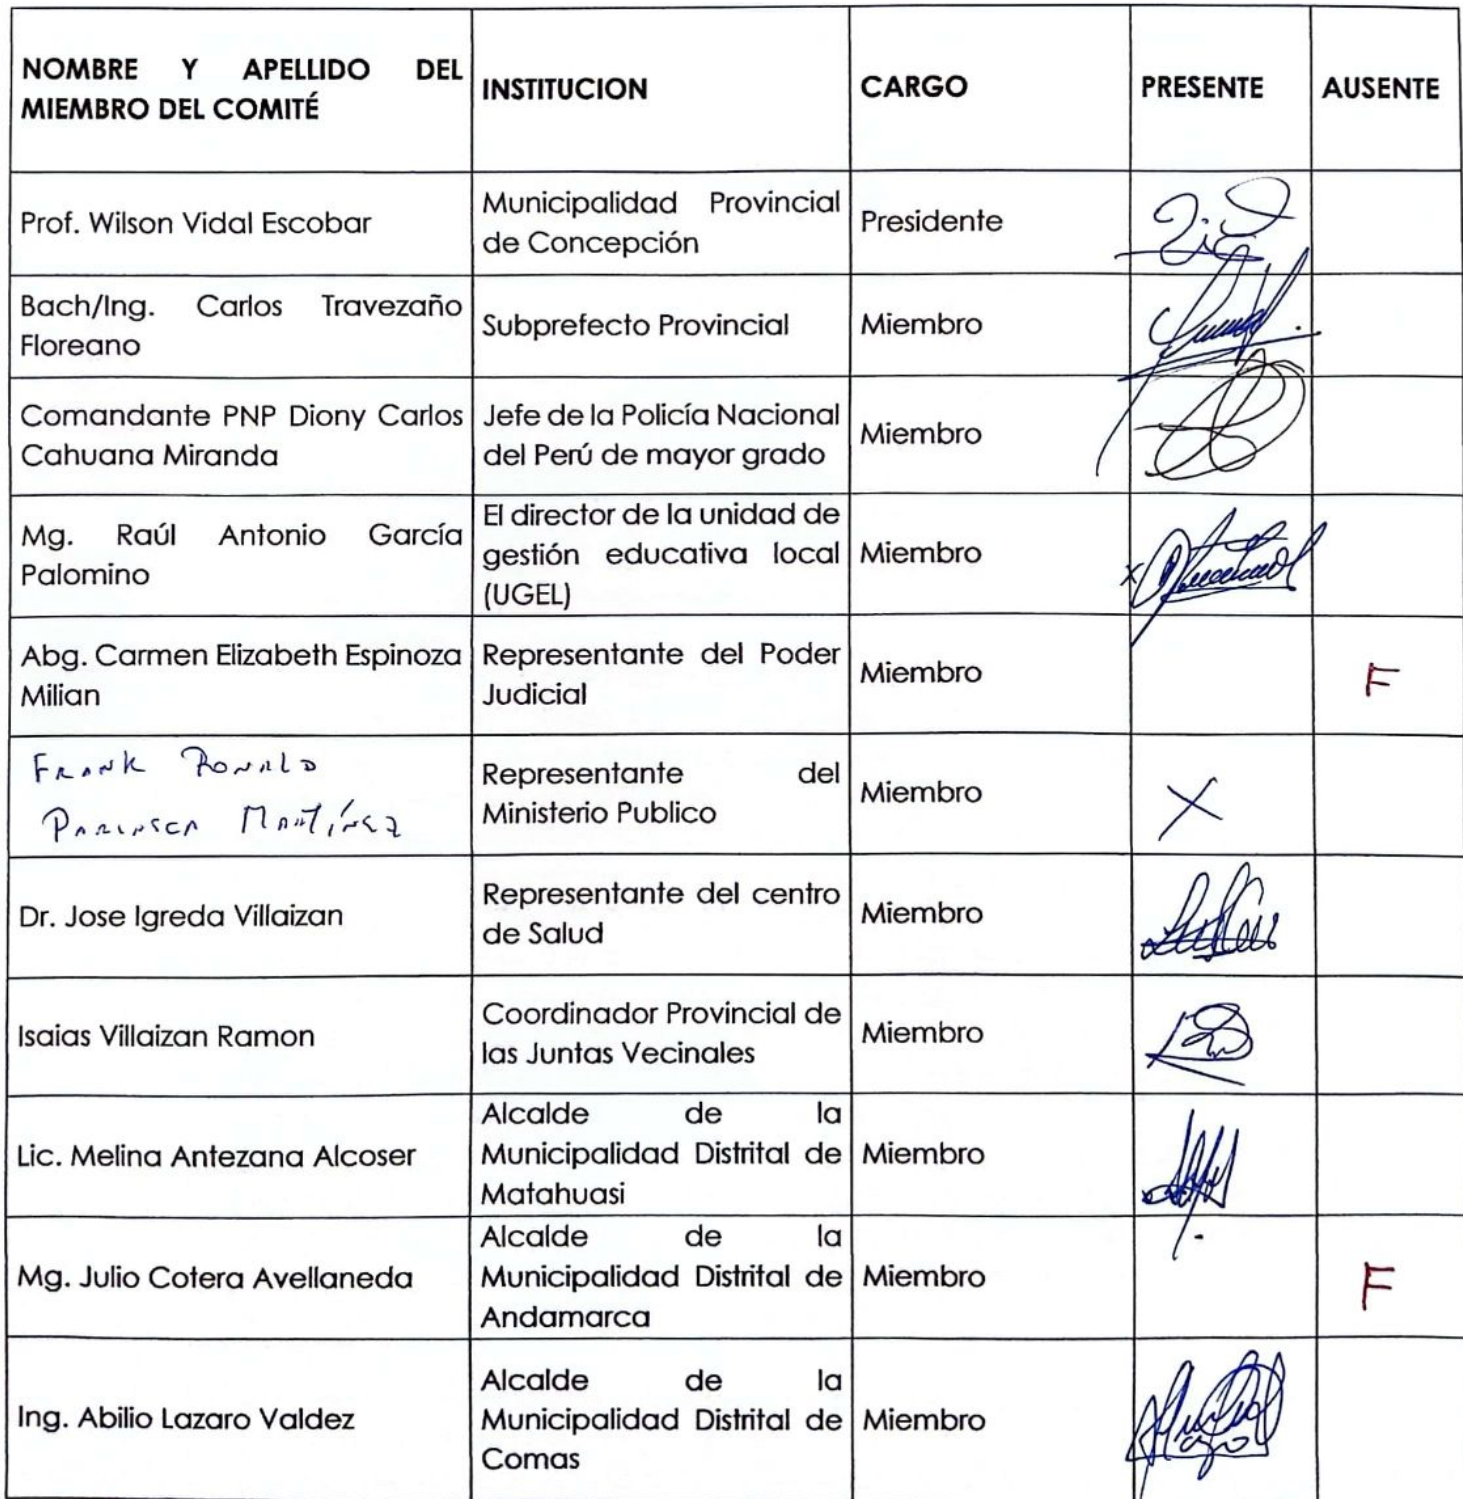 NOMBRE Y APELLIDO DEL
MIEMBRO DEL COMITÉ
INSTITUCION
CARGO
PRESENTE
AUSENTE
Prof. Wilson Vidal Escobar
Municipalidad Provincial
de Concepción
Presidente
Bach/Ing. Carlos Travezaño
Floreano
Subprefecto Provincial
Miembro
Comandante PNP Diony Carlos
Cahuana Miranda
Jefe de la Policía Nacional
del Perú de mayor grado
Miembro
Mg. Raúl Antonio García
Palomino
El director de la unidad de
gestión educativa local
(UGEL)
Miembro
X
Abg. Carmen Elizabeth Espinoza
Milian
Representante del Poder
Judicial
Miembro
F
FRANK RONALD
MARTÍNEZ
Representante del
Ministerio Publico
Miembro
X
Dr. Jose Igreda Villaizan
Representante del centro
de Salud
Miembro
Isaias Villaizan Ramon
Coordinador Provincial de
las Juntas Vecinales
Miembro
Lic. Melina Antezana Alcoser
Alcalde de la
Municipalidad Distrital de
Matahuasi
Miembro
Mg. Julio Cotera Avellaneda
Alcalde de la
Municipalidad Distrital de
Andamarca
Miembro
F
Ing. Abilio Lazaro Valdez
Alcalde de la
Municipalidad Distrital de
Comas
Miembro